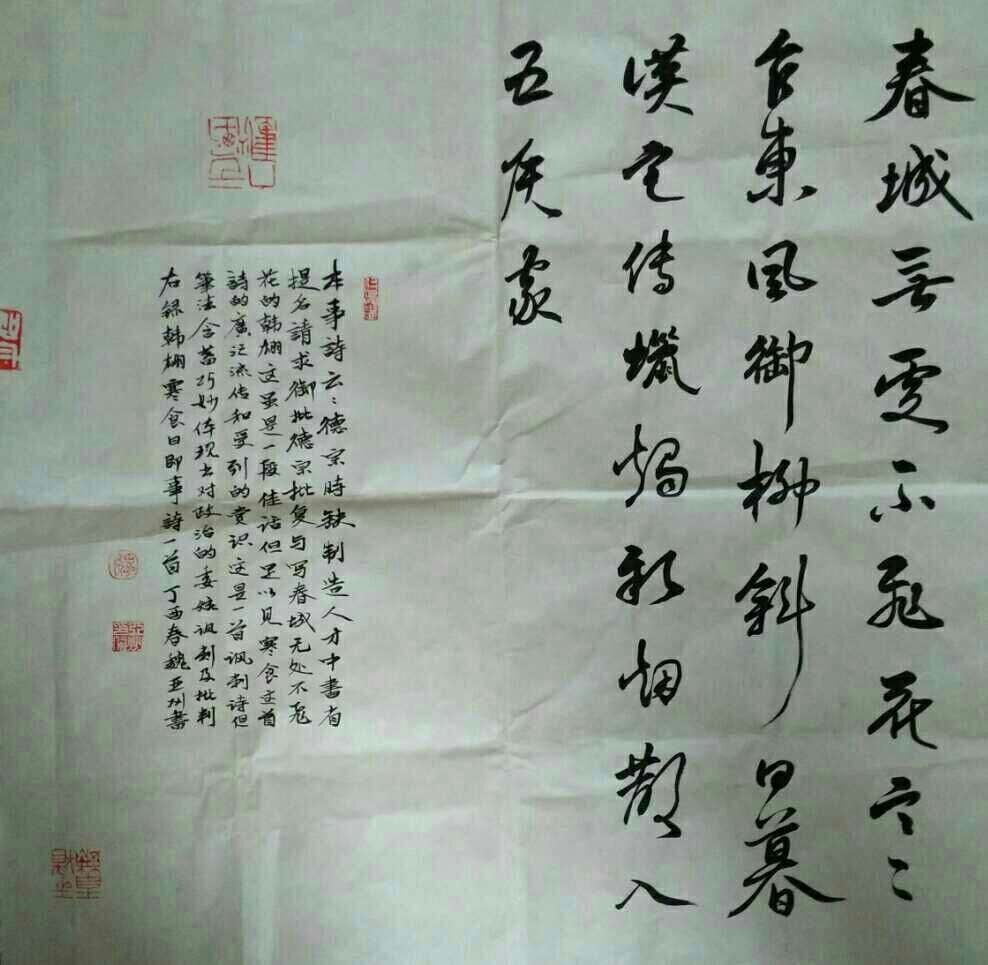 春城無處不飛花寒
食東風御柳斜日暮
漢宮傳蠟燭轻烟散入
五侯家
本事詩云：德宗時缺制造人才中書省
提名請求御批德宗批复与写春城无处不飛
花的韩翃这虽是一段佳话但足以見寒食这首
詩的廣泛流传和受到的赏识这是一首讽刺诗但
筆法含蓄巧妙体现出对政治的委婉讽刺及批判
右録韩翃寒食日即事詩一首丁酉春魏亚州書